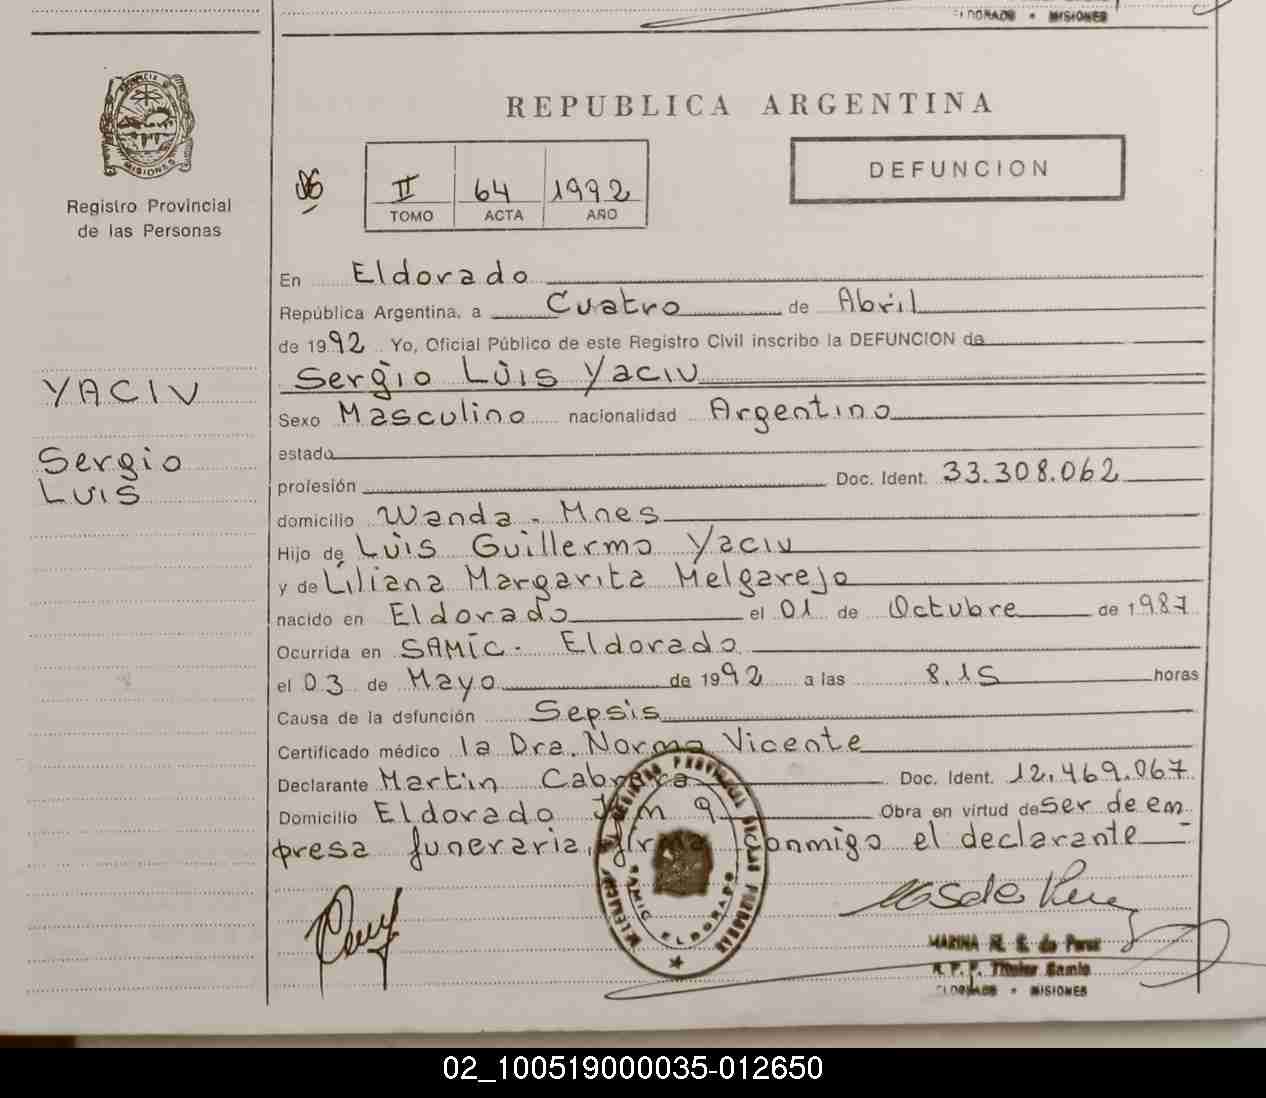 ELDORADO - MISIONES
PROVINCIA DE
MISIONES
Registro Provincial
de las Personas
YACIV
Sergio
LUIS
REPUBLICA ARGENTINA
II 64 1992
TOMO ACTA AÑO
DEFUNCION
En Eldorado
República Argentina, a Cuatro de Abril
de 1992 Yo, Oficial Público de este Registro Civil inscribo la DEFUNCION de
Sergio Luis Yaciv
Sexo Masculino nacionalidad Argentino
estado
profesión Doc. Ident. 33.308.062
domicilio Wanda - Mnes
Hijo de Luis Guillermo Yaciv
y de Liliana Margarita Melgarejo
nacido en Eldorado el 01 de Octubre de 1987
Ocurrida en SAMIC - Eldorado
el 03 de Mayo de 1992 a las 8.15 horas
Causa de la defunción Sepsis
Certificado médico la Dra. Norma Vicente
Declarante Martin Cabrera Doc. Ident. 12.469.067
Domicilio Eldorado Km 9 Obra en virtud de ser de em
presa funeraria, firma conmigo el declarante
SAMIC ELDORADO
MARINA R. E. de Perez
R. P. P. Titular Samic
ELDORADO - MISIONES
02_100519000035-012650